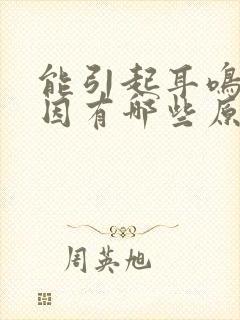 能引起耳鸣
因有哪些原
周英旭